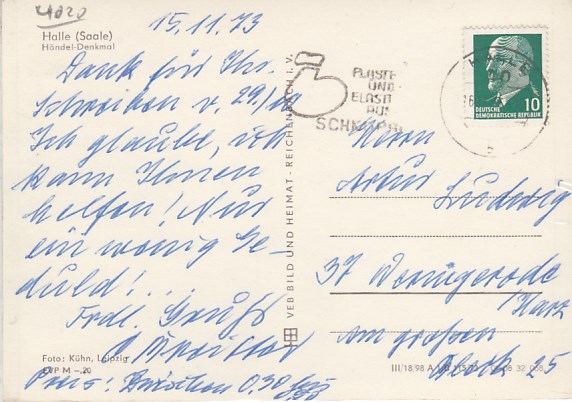 4020
15.11.73
Halle (Saale)
Händel-Denkmal
Dank für Ihr.
Schreiben v. 29./10
Ich glaube, ich
kann Ihnen
helfen! Nur
ein wenig Ge-
duld!...
Frdl. Gruß
Foto: Kühn, Leipzig
EVP M -,20
Preis: Zwischen 0,30
VEB BILD UND HEIMAT · REICHENBACH i. V.
PLASTE
UND
ELASTE
AUS
SCHKOPAU
HALLE
10
DEUTSCHE
DEMOKRATISCHE REPUBLIK
Herrn
Artur Ludwig
37 Wernigerode
/Harz
Am großen
Bleek 25
III/18/98 A 1/B